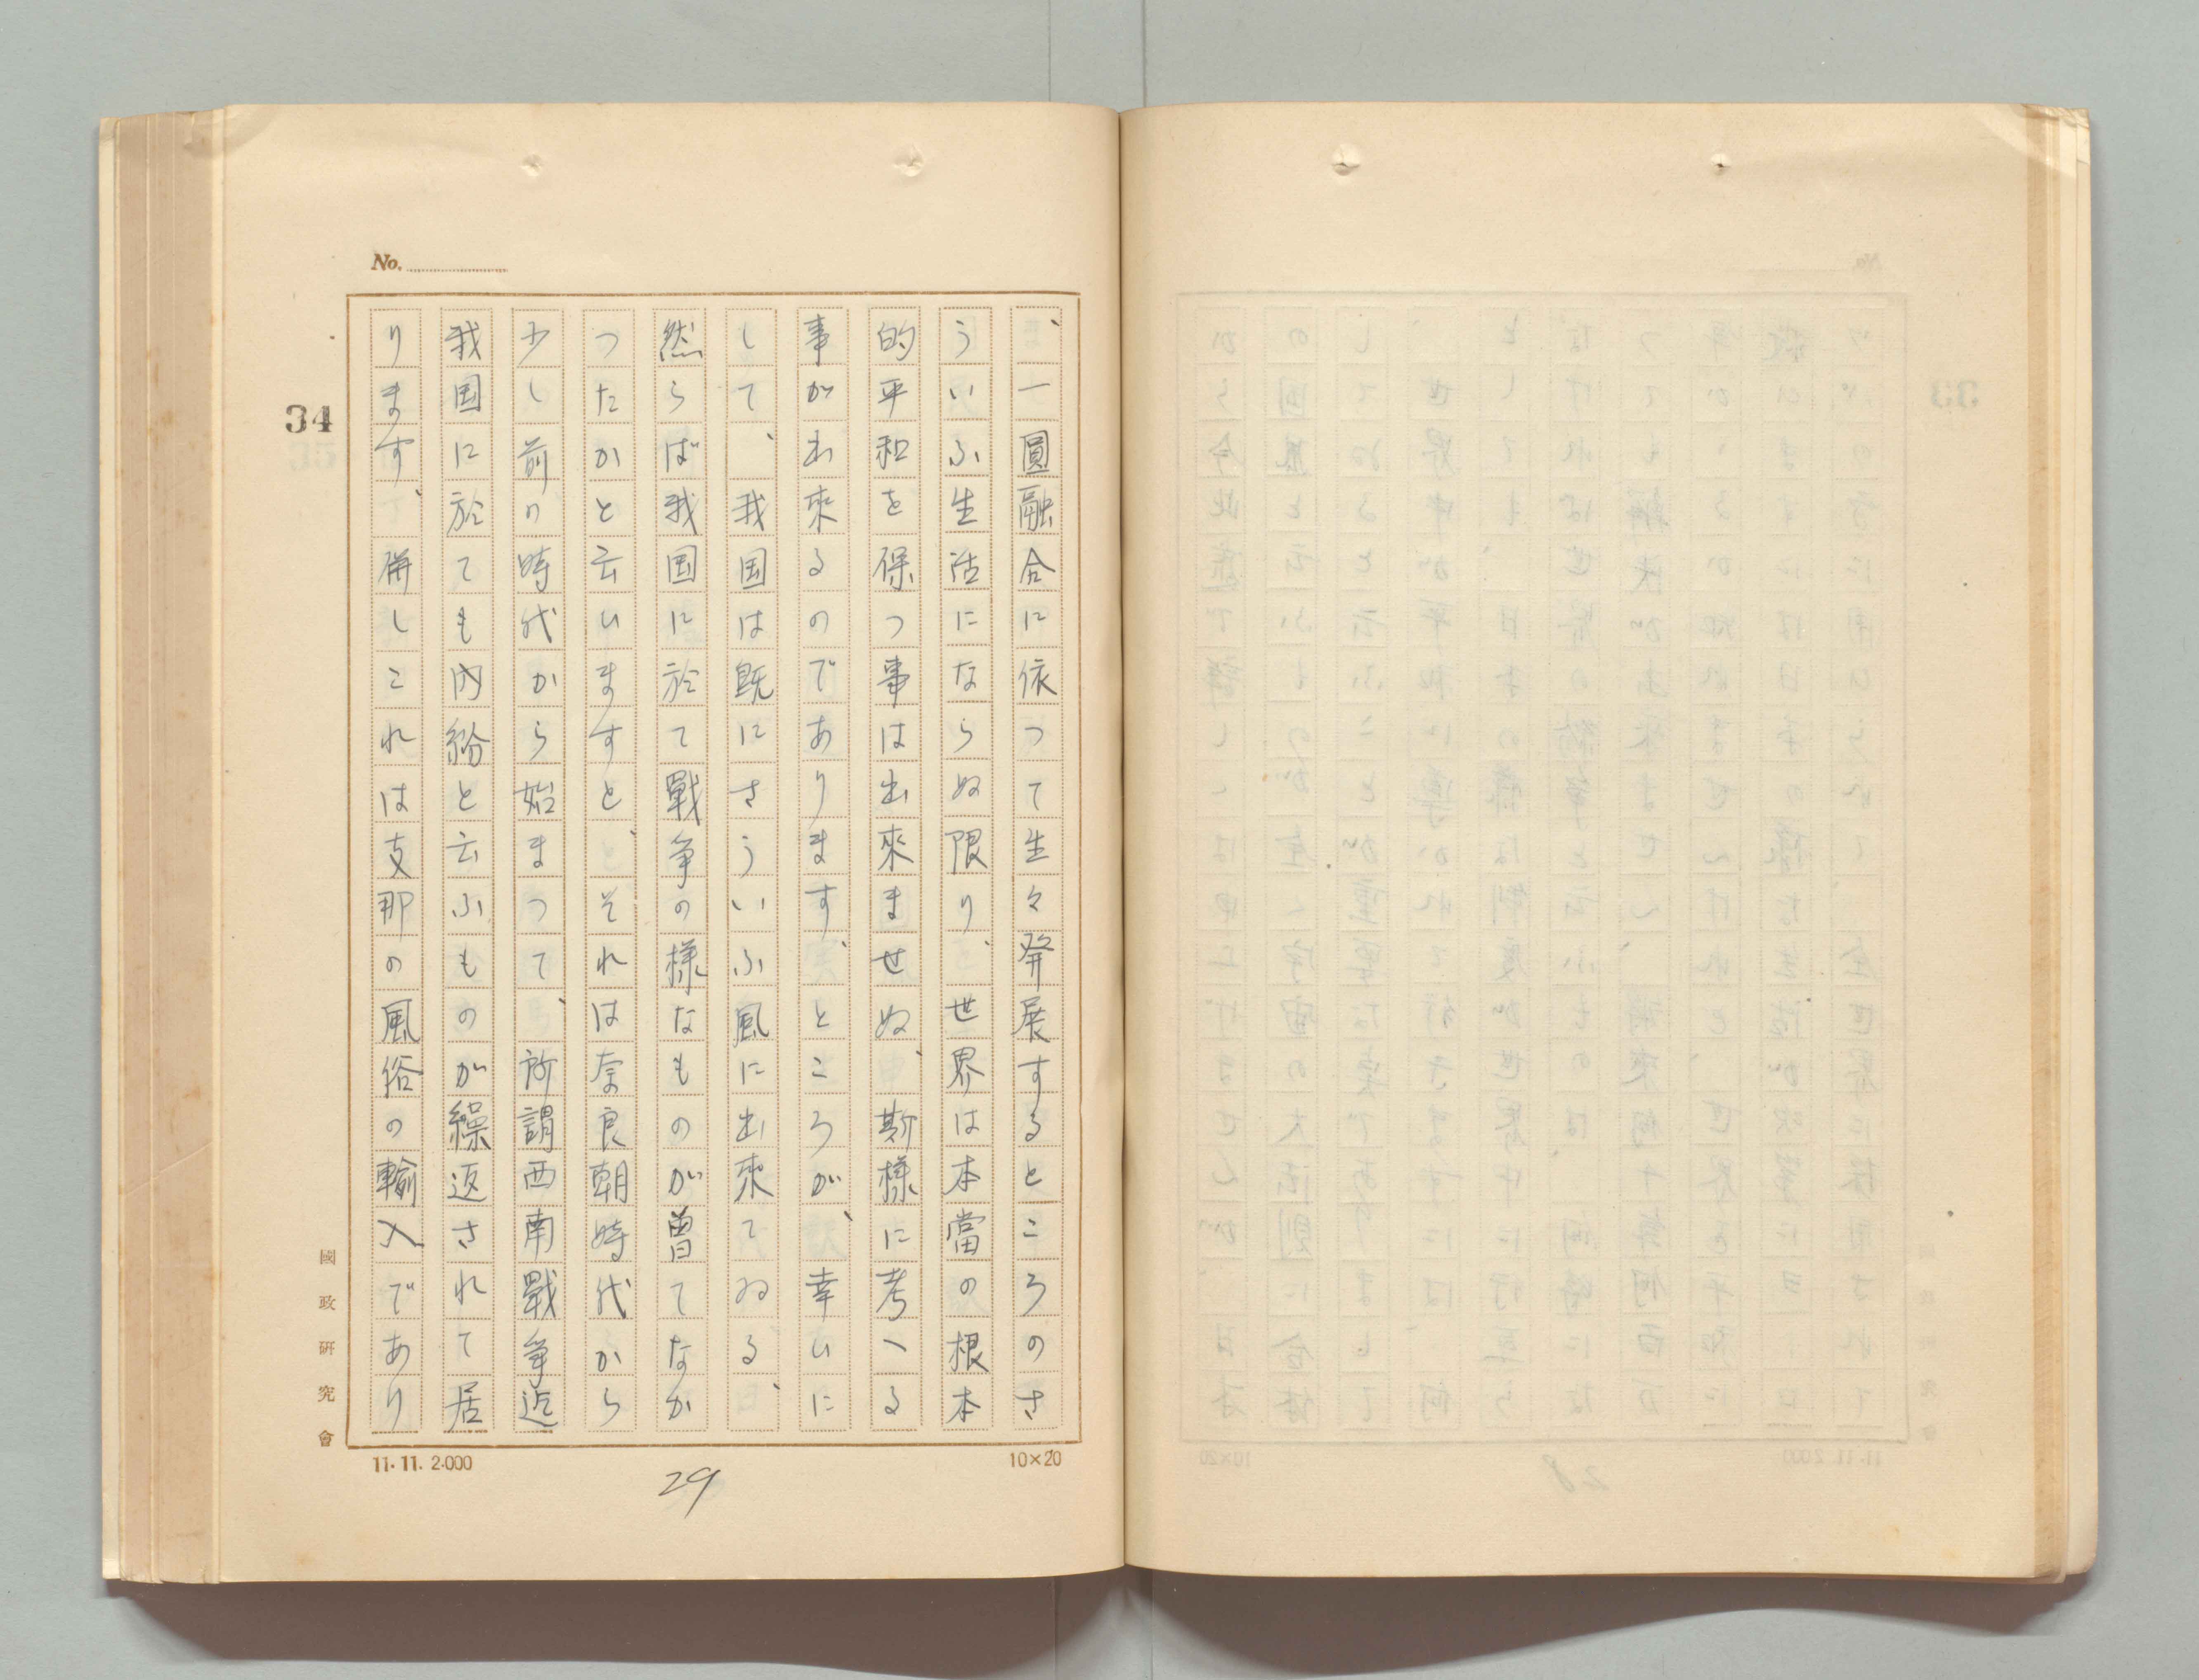 No.
、一圓融合に依つて生々発展するところのさ
ういふ生活にならぬ限り、世界は本當の根本
的平和を保つ事は出來ませぬ、斯様に考へる
事が出來るのであります、ところが、幸ひに
して、我国は既にさういふ風に出來てゐる、
然らば我国に於て戰争の様なものが曽てなか
つたかと云ひますと、それは奈良朝時代から
少し前の時代から始まつて、所謂西南戰争迄
我国に於ても内紛と云ふものが繰返されて居
ります、併しこれは支那の風俗の輸入であり
34
國政研究會
10×20
11.11. 2.000
29